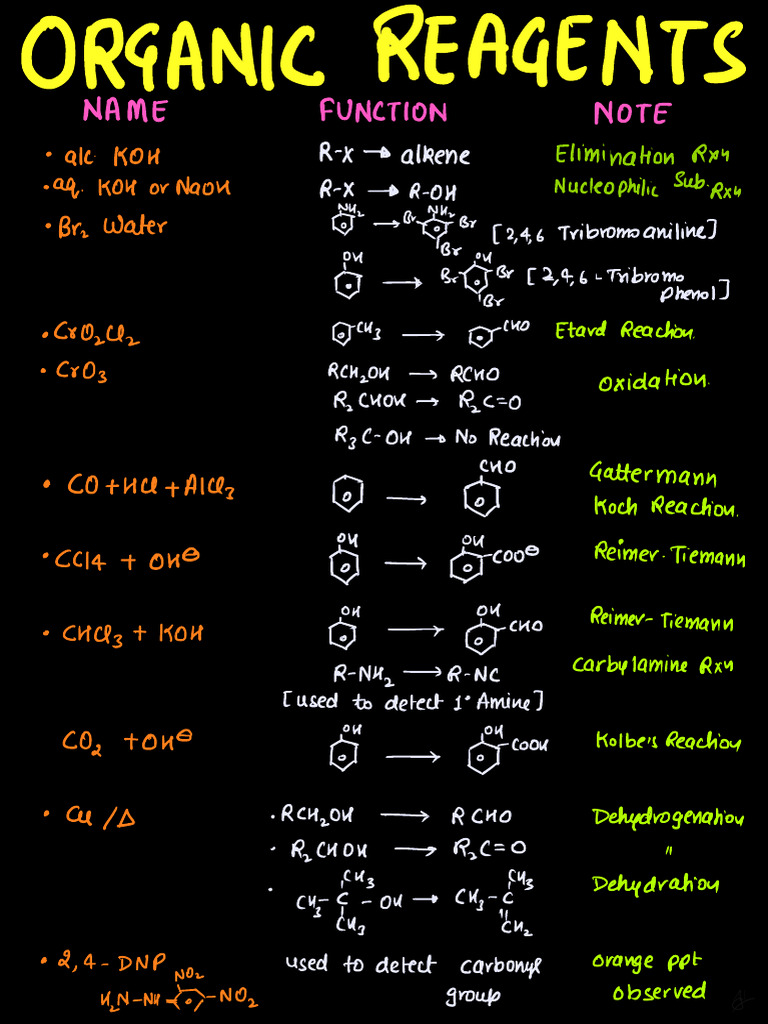 ORGANIC REAGENTS
NAME FUNCTION NOTE
• alc. KOH R-X → alkene Elimination Rxn
• aq. KOH or NaOH R-X → R-OH Nucleophilic Sub. Rxn
• Br2 Water NH2 → Br NH2 Br Br [2,4,6 Tribromoaniline]
OH → Br OH Br Br [2,4,6-Tribromo
Phenol]
• CrO2Cl2 CH3 → CHO Etard Reaction.
• CrO3 RCH2OH → RCHO Oxidation.
R2CHOH → R2C=O
R3C-OH → No Reaction
• CO+HCl+AlCl3 → CHO Gattermann
Koch Reaction.
• CCl4 + OH⊖ OH → OH COO⊖ Reimer-Tiemann
• CHCl3 + KOH OH → OH CHO Reimer-Tiemann
R-NH2 → R-NC Carbylamine Rxn
[used to detect 1° Amine]
CO2 +OH⊖ OH → OH COOH Kolbe's Reaction
• Cu/Δ • RCH2OH → RCHO Dehydrogenation
• R2CHOH → R2C=O "
• CH3-C(CH3)(CH3)-OH → CH3-C(CH3)=CH2 Dehydration
• 2,4-DNP used to detect carbonyl group orange ppt
H2N-NH- NO2 -NO2 observed